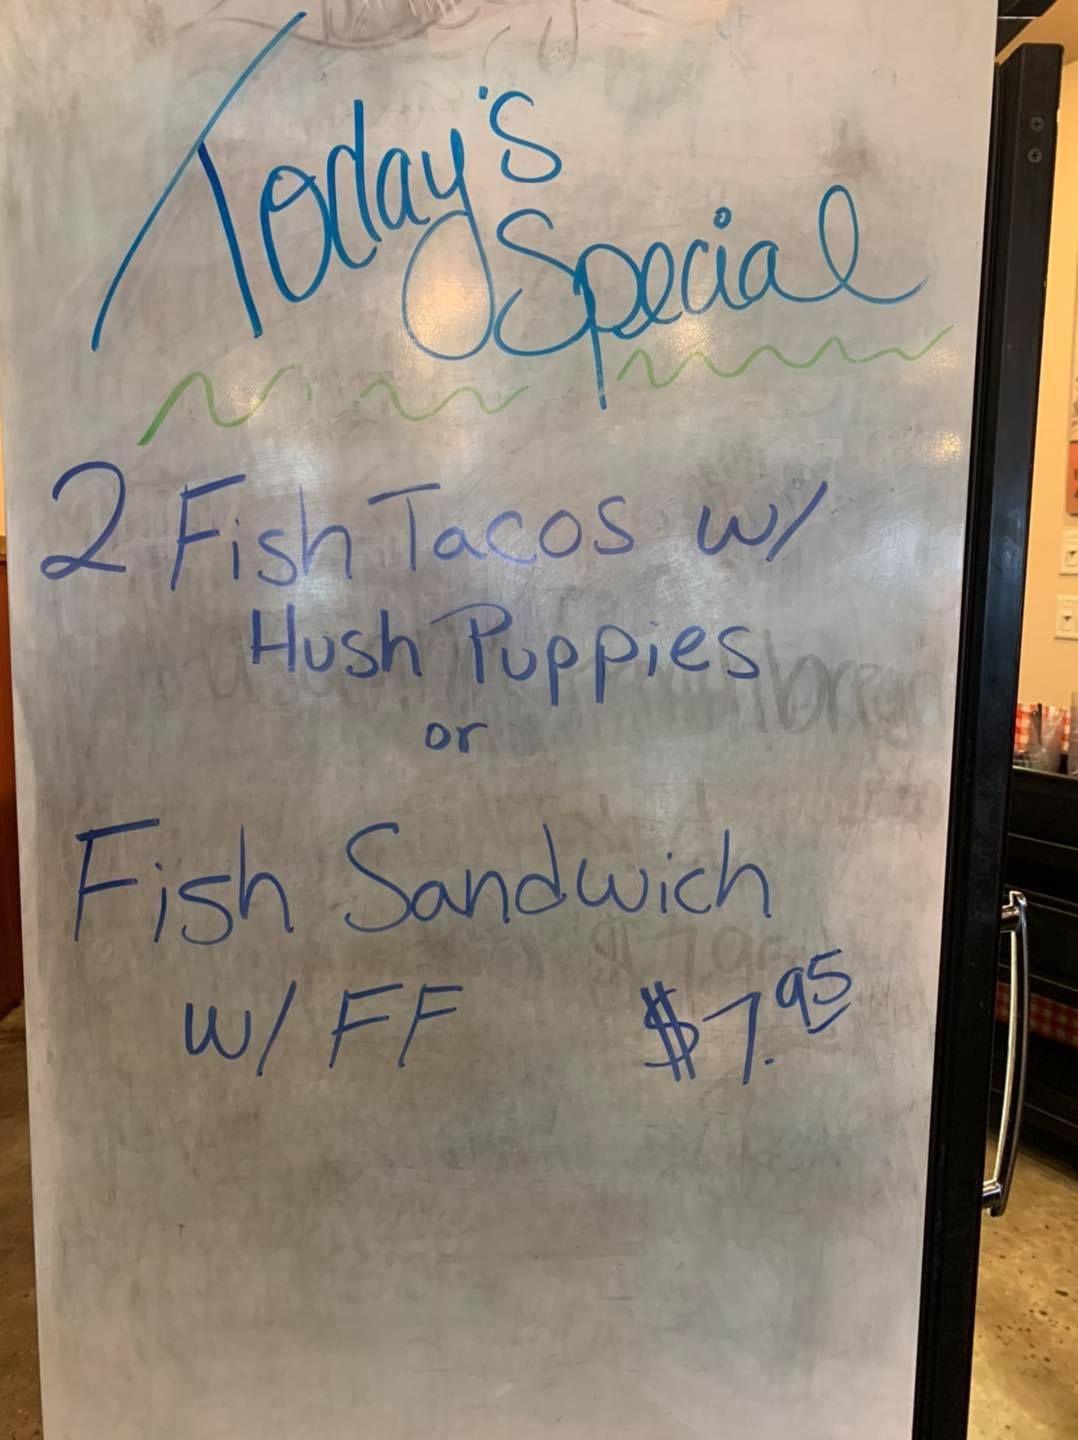 Today's
Special
2 Fish Tacos w/
Hush Puppies
or
Fish Sandwich
w/ FF $7.95